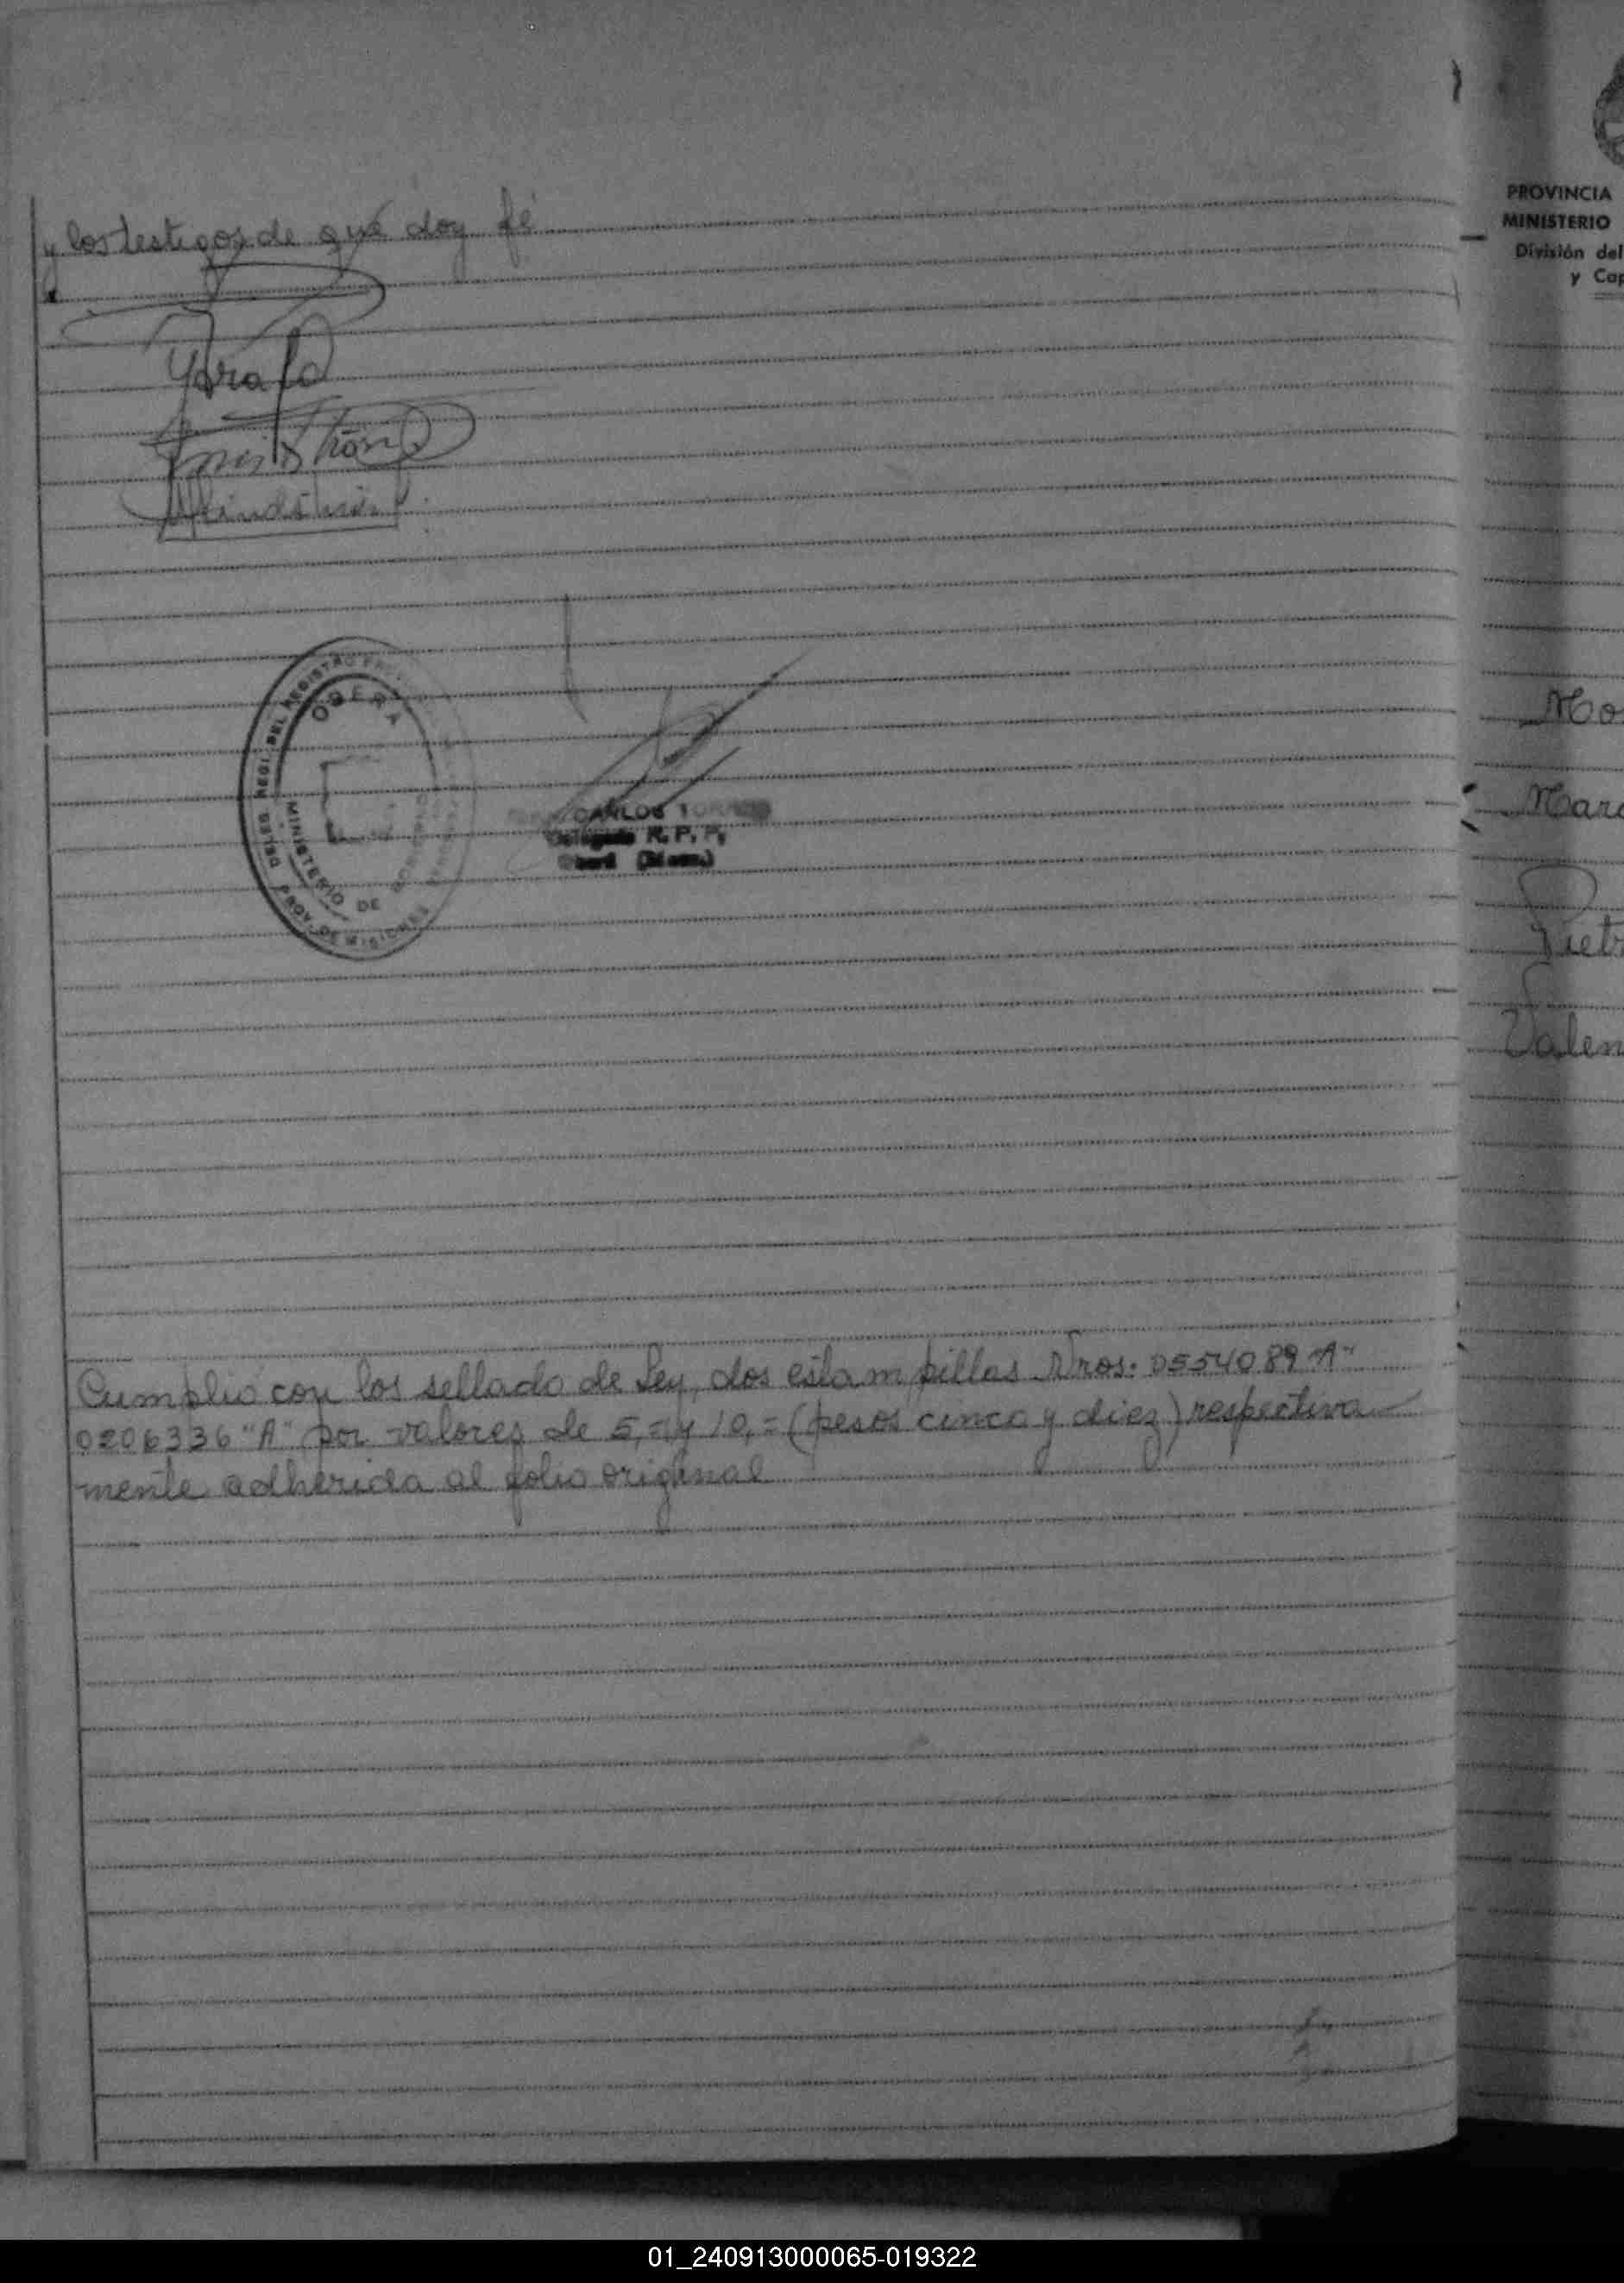 y los testigos de que doy fé
OBERA
MINISTERIO DE
PROV. DE MISIONES
CARLOS
Delegado R. P. P.
Oberá (Mnes.)
Cumplio con los sellado de Ley, dos estampillas Nros. 0554089 "A"
0206336 "A" por valores de 5,= y 10,= (pesos cinco y diez) respectiva
mente adherida al folio original
PROVINCIA
MINISTERIO
División del
y Cap
Mo
Marc
Pietr
Valen
01_240913000065-019322